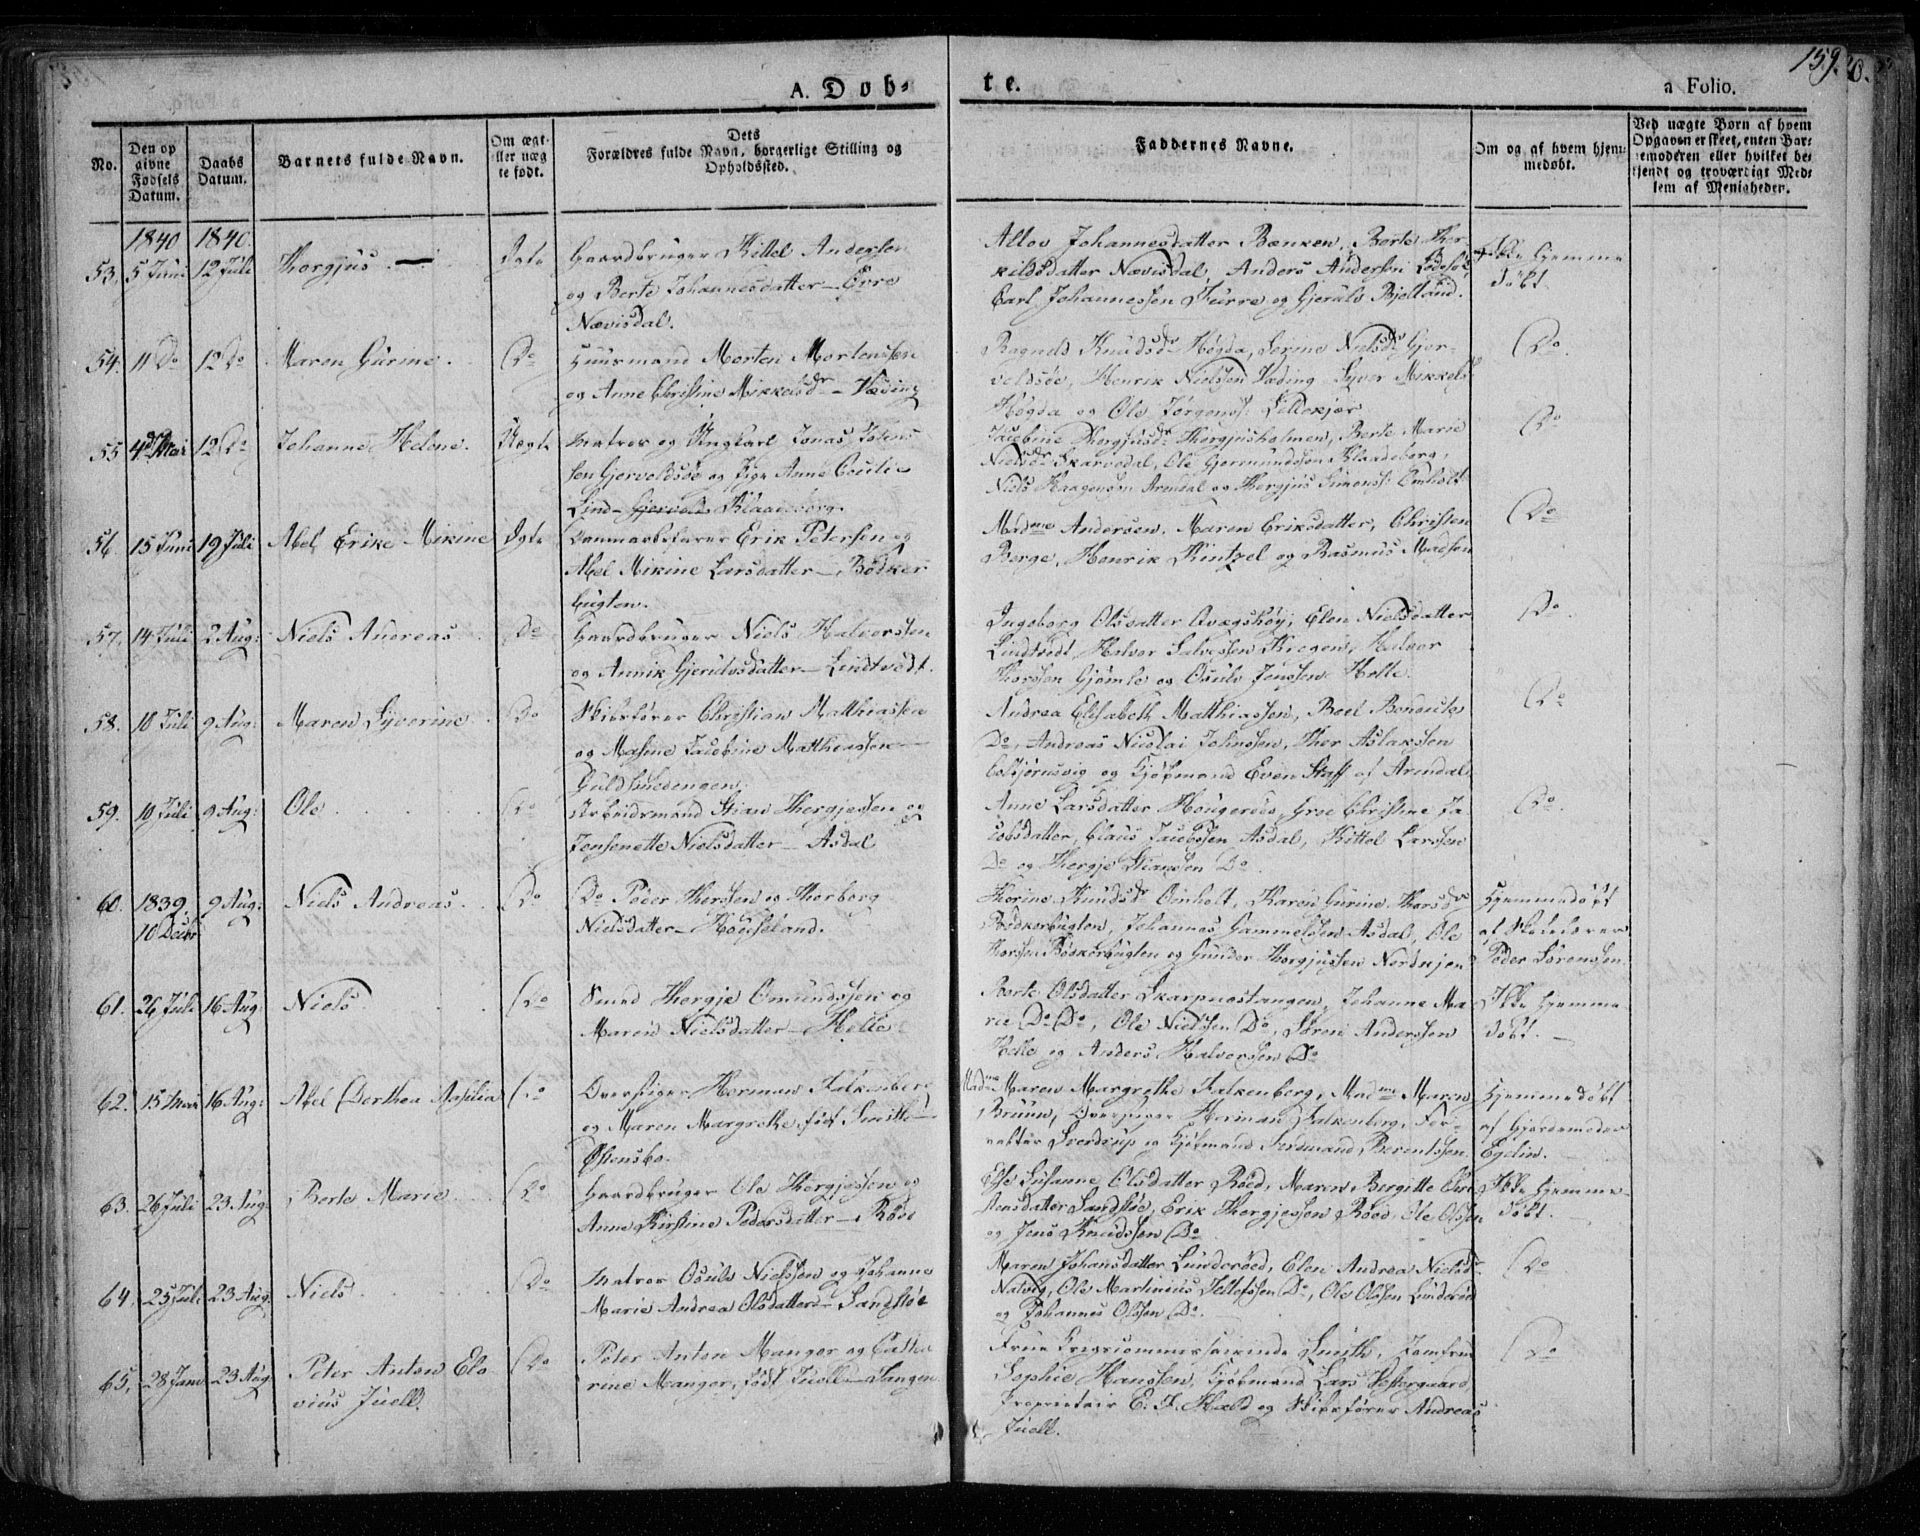 159.
A. Døb-
te.
a Folio.
No.
Den op
givne
Fødsels
Datum.
Daabs
Datum.
Barnets fulde Navn.
Om ægt-
eller uæg
te født.
Dets
Forældres fulde Navn, borgerlige Stilling og
Opholdssted.
Faddernes Navne.
Om og af hvem hjem-
medøbt.
Ved uægte Børn af hvem
Opgaven er skeet, enten Bar-
nemoderen eller hvilket be-
kjendt og troværdigt Med-
lem af Menigheden.
1840 1840.
53. 5 Juni 12 Juli Thorgjus Ægte
Gaardbruger Kittel Andersen
og Berte Johannesdatter - Øvre
Nævisdal.
Johannesdatter Bænken, Berte Thor-
kildsdatter Nævisdal, Anders Andersen
Carl Johannessen Furre og Gjerulv Bjelland.
Ikke hjemme
døbt.
54. 11 Do 12 Do Maren Gurine. Do
Huusmand Morten Mortensen
og Anne Christine Mikkelsdr - Væding
Ragnild Knudsdr Høgda, Serine Nielsdr Gjer-
veldsøe, Henrik Nielsen Væding Syver Mikkels
Høgda og Ole Jørgens: Lillekjær
Do.
55 4de Mai 12 Do Johanne Helene. Uægte
Matros og Ungkarl Jonas Johns
sen Gjerveldsøe og Pige Anne Cecilie
Lind - Klaadeborg.
Jacobine Thorgjusdr Thorgjusholmen, Berte Marie
Nielsdr Skarvedal, Ole Gjermundssen Klaadeborg,
Niels Haagensen Arendal og Thorgjus Simons: Omholt
Do
56. 15 Juni 19 Juli Abel Erike Mikine Ægte
Dannarbefarer Erik Petersen og
Abel Mikine Larsdatter - Bødker
bugten.
Madme Andersen, Maren Eriksdatter, Christen
Berge, Henrik Kintzel og Rasmus Madsen
Do
57. 14 Juli 2 Aug: Niels Andreas Do
Gaardbruger Niels Halvorssen
og Annik Gjerulvsdatter - Lindtvedt.
Ingeborg Olsdatter Qvægshøy, Elen Nielsdatter
Lindtvedt, Halvor Salvessen Kregen, Halvor
Thorssen Gjømle og Osuls Jenssen Helle.
Do.
58. 10 Juli 9 Aug: Maren Syverine Do
Skibsfører Christian Matthiassen
og Masine Jacobine Matthiassen -
Guldsmedengen.
Andrea Elisabeth Matthiassen, Boel
Do, Andreas Nicolai Johnssen, Ther Aslaksen
Colbjørnsvig og Kjøbmand Even Staff af Arendal
Do
59. 10 Juli 9 Aug: Ole Do
Arbeidsmand Stian Thorgjessen og
Jensenette Nielsdatter - Asdal
Anne Larsdatter Hougerøes, Groe Christine Ja
cobsdatter, Claus Jacobssen Asdal, Kittel Larssen
Do og Thorgje Stianssen Do
Do
60. 1839 9 Aug: Niels Andreas. Do
10 Decbr
Do Peder Thorssen og Thorborg
Nielsdatter - Houseland.
Thorine Knudsdr Omholt, Karen Gurine Thorsdr
Bødkerbugten, Johannes Gammelssen Asdal, Ole
Thorssen Bødkerbugten og Gunder Thorgjussen Nordkjen
Hjemmedøbt
af Skolelærer
Peder Sørensen.
61. 26 Juli 16 Aug: Niels Do
Smed Thorgje Omundssen og
Maren Nielsdatter - Helle
Berte Olsdatter Skarpnestangen, Johanne Ma
rie Do Do, Ole Nielssen Do, Søren Anderssen
Helle og Anders Halvorssen Do
Ikke hjemme
døbt.
62. 15 Mai 16 Aug: Abel Dorthea Aasilia Do
Overstiger Herman Falkenberg
og Maren Margrethe, født Smith -
Østensbo.
Madme Maren Margrethe Falkenberg, Madme Maren
Bruun, Overstiger Herman Falkenberg, For-
valter Sverdrup og Kjøbmand Ferdinand Berentssen.
Hjemmedøbt
af Gjordemoder
Egelin.
63. 26 Juli 23 Aug: Berte Marie Do
Gaardbruger Ole Thorgjessen og
Anne Kirstine Pedersdatter - Røed
Else Susanne Olsdatter Røed, Maren Bergitte Chri
stensdatter Sandstøe, Erik Thorgjessen Røed, Ole Olssen
og Jens Knudssen Do
Ikke hjemme-
døbt.
64. 25 Juli 23 Aug: Niels Do
Matros Osuls Nielssen og Johanne
Marie Andrea Olsdatter - Sandstøe
Maren Johansdatter Lunderøed, Elen Andrea Nielsdr
Natvig, Ole Martinius Tellefssen Do, Ole Olssen Lunderøed
og Johannes Olssen Do.
Do
65. 28 Janr 23 Aug: Peter Anton Clo
vius Juell. Do
Peter Anton Manger og Catha
rine Manger, født Juell - Sangen
Frue Krigscommissairinde Smith, Jomfru
Sophie Hanssen, Kjøbmand Lars Westergaard,
Proprietair E. F. Hald og Skibsfører Andreas
Juell.
Do